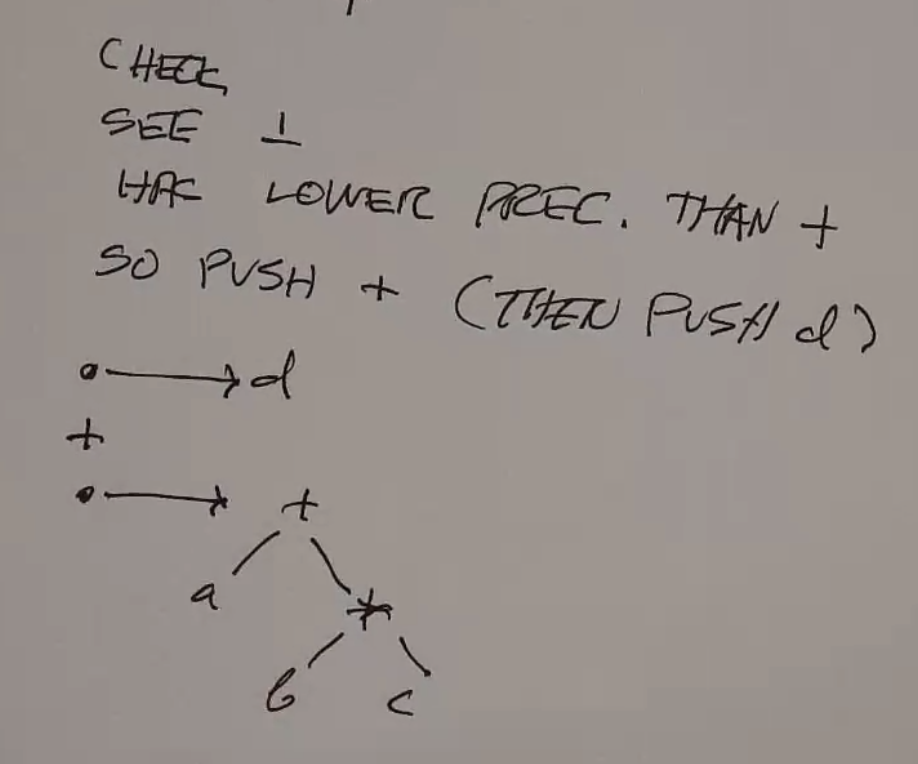 CHECK
SEE ⊥
HAS LOWER PREC. THAN +
SO PUSH + (THEN PUSH d)
d
+
+
a
*
b c